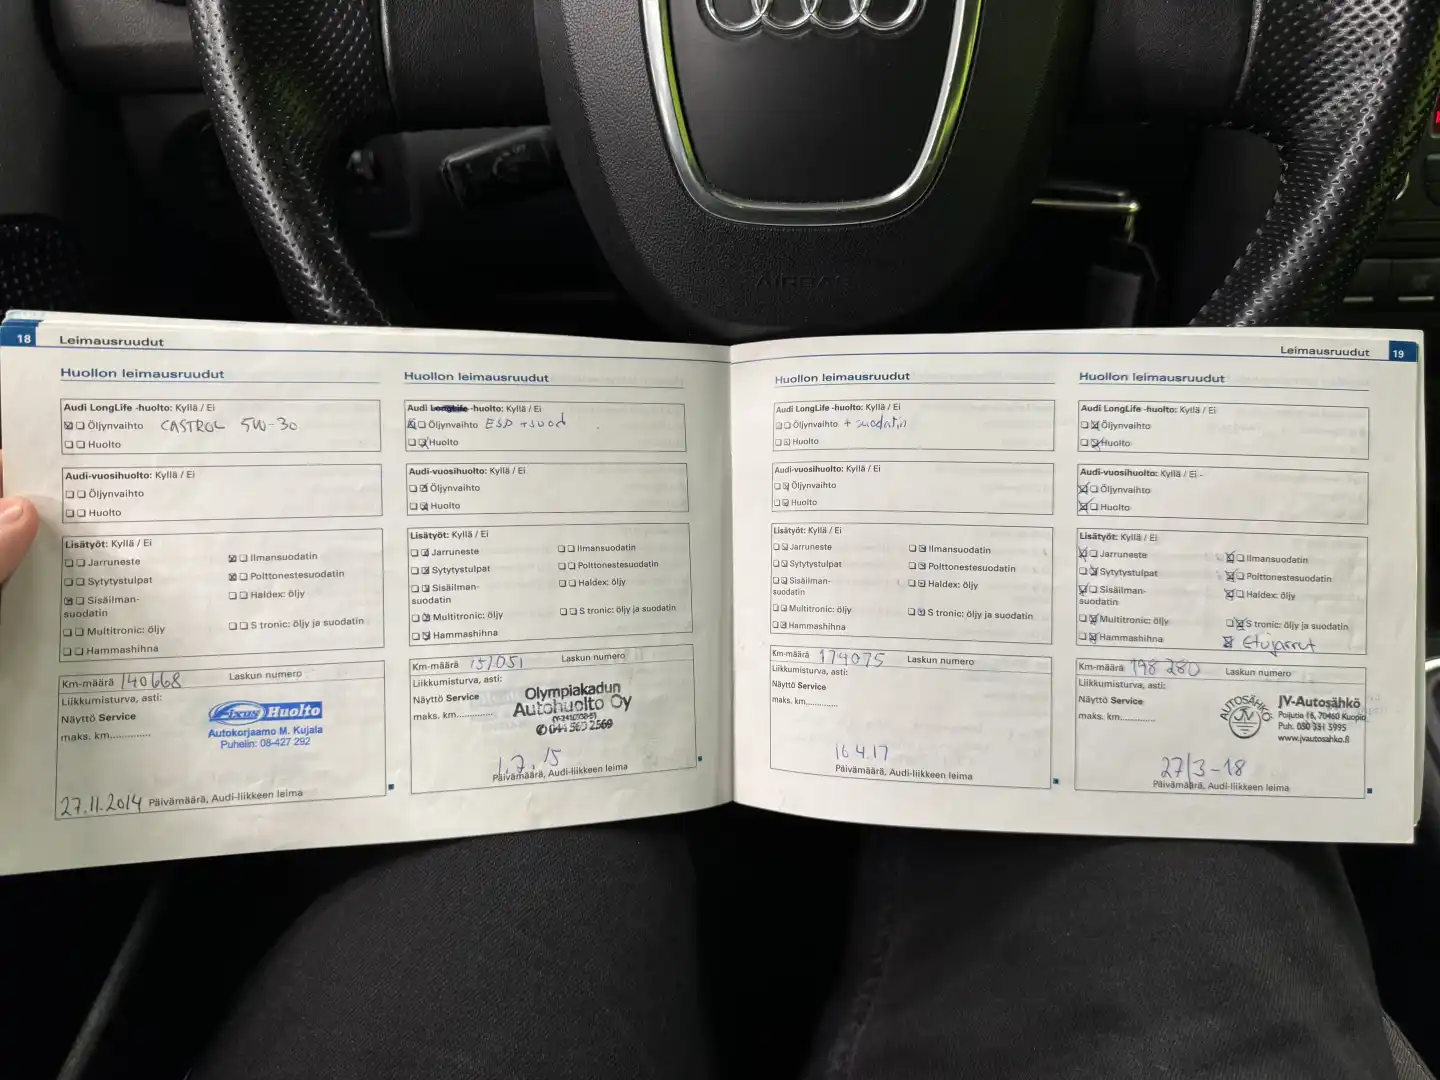 AIRBAG
18 Leimausruudut
Huollon leimausruudut
Audi LongLife -huolto: Kyllä / Ei
Öljynvaihto CASTROL 5W-30
Huolto
Audi-vuosihuolto: Kyllä / Ei
Öljynvaihto
Huolto
Lisätyöt: Kyllä / Ei
Jarruneste
Sytytystulpat
Sisäilman-
suodatin
Multitronic: öljy
Hammashihna
Ilmansuodatin
Polttonestesuodatin
Haldex: öljy
S tronic: öljy ja suodatin
Km-määrä 140668 Laskun numero
Liikkumisturva, asti:
Näyttö Service
maks. km.............
Fixus Huolto
Autokorjaamo M. Kujala
Puhelin: 08-427 292
27.11.2014 Päivämäärä, Audi-liikkeen leima
Huollon leimausruudut
Audi LongLife -huolto: Kyllä / Ei
Öljynvaihto ESP +suod
Huolto
Audi-vuosihuolto: Kyllä / Ei
Öljynvaihto
Huolto
Lisätyöt: Kyllä / Ei
Jarruneste
Sytytystulpat
Sisäilman-
suodatin
Multitronic: öljy
Hammashihna
Ilmansuodatin
Polttonestesuodatin
Haldex: öljy
S tronic: öljy ja suodatin
Km-määrä 157051 Laskun numero
Liikkumisturva, asti:
Näyttö Service
maks. km.............
Olympiakadun
Autohuolto Oy
044 560 2569
1.7.15
Päivämäärä, Audi-liikkeen leima
Leimausruudut 19
Huollon leimausruudut
Audi LongLife -huolto: Kyllä / Ei
Öljynvaihto + suodatin
Huolto
Audi-vuosihuolto: Kyllä / Ei
Öljynvaihto
Huolto
Lisätyöt: Kyllä / Ei
Jarruneste
Sytytystulpat
Sisäilman-
suodatin
Multitronic: öljy
Hammashihna
Ilmansuodatin
Polttonestesuodatin
Haldex: öljy
S tronic: öljy ja suodatin
Km-määrä 174075 Laskun numero
Liikkumisturva, asti:
Näyttö Service
maks. km.............
16.4.17
Päivämäärä, Audi-liikkeen leima
Huollon leimausruudut
Audi LongLife -huolto: Kyllä / Ei
Öljynvaihto
Huolto
Audi-vuosihuolto: Kyllä / Ei
Öljynvaihto
Huolto
Lisätyöt: Kyllä / Ei
Jarruneste
Sytytystulpat
Sisäilman-
suodatin
Multitronic: öljy
Hammashihna
Ilmansuodatin
Polttonestesuodatin
Haldex: öljy
S tronic: öljy ja suodatin
Etujarrut
Km-määrä 198 280 Laskun numero
Liikkumisturva, asti:
Näyttö Service
maks. km.............
AUTOSÄHKÖ
JV
JV-Autosähkö
Poijutie 16, 70460 Kuopio
Puh. 050 351 5995
www.jvautosahko.fi
27/3-18
Päivämäärä, Audi-liikkeen leima